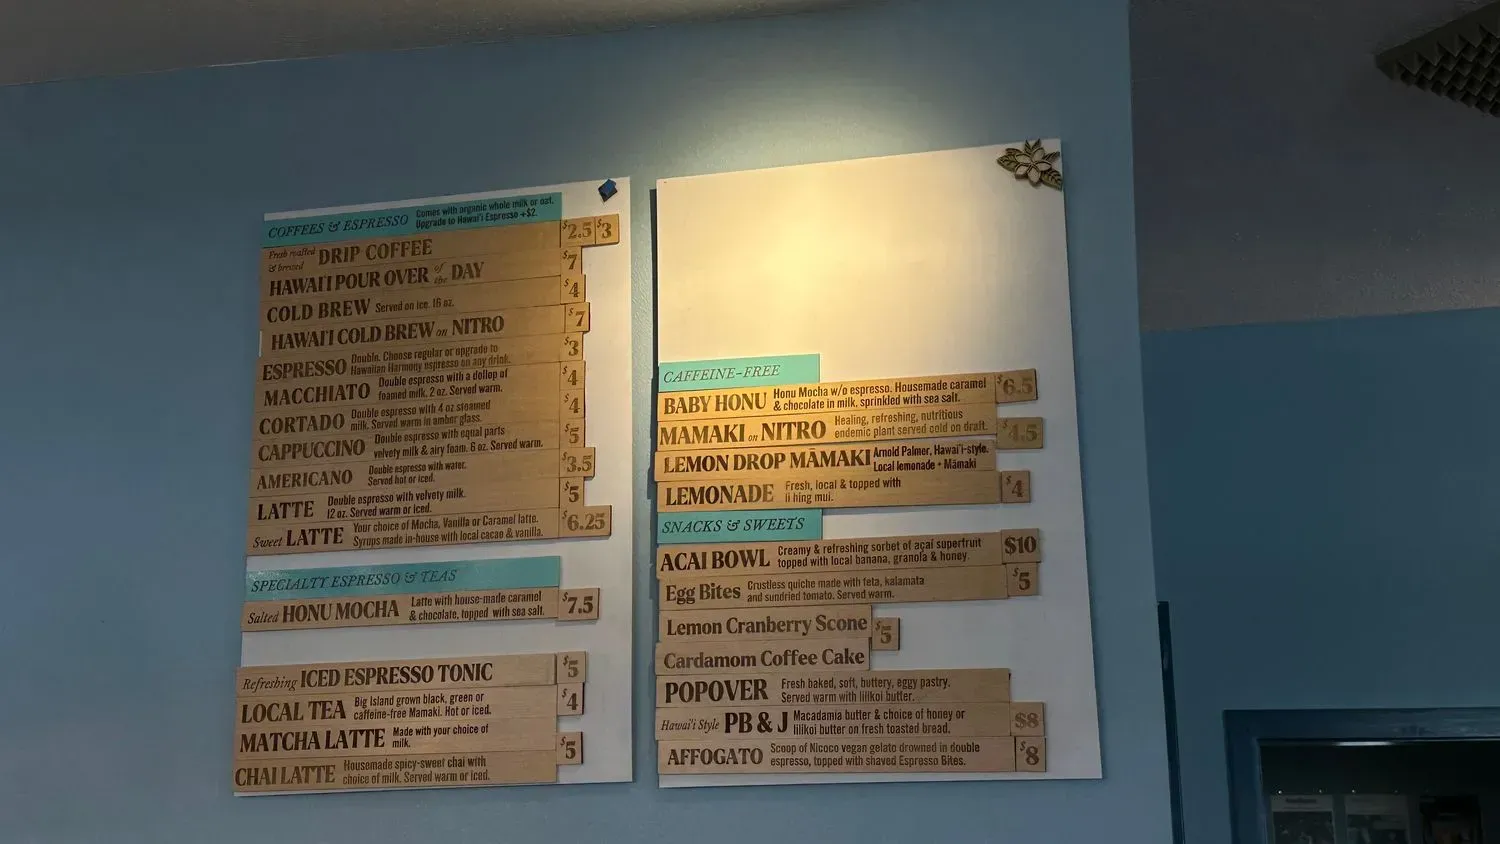 COFFEES & ESPRESSO Comes with organic whole milk or oat.
Upgrade to Hawai'i Espresso +$2.
Fresh roasted
& brewed DRIP COFFEE $2.5 $3
HAWAI'I POUR OVER of the DAY $7
COLD BREW Served on ice. 16 oz. $4
HAWAI'I COLD BREW on NITRO $7
ESPRESSO Double. Choose regular or upgrade to
Hawaiian Harmony espresso on any drink. $3
MACCHIATO Double espresso with a dollop of
foamed milk, 2 oz. Served warm. $4
CORTADO Double espresso with 4 oz steamed
milk. Served warm in amber glass. $4
CAPPUCCINO Double espresso with equal parts
velvety milk & airy foam. 6 oz. Served warm. $5
AMERICANO Double espresso with water.
Served hot or iced. $3.5
LATTE Double espresso with velvety milk.
12 oz. Served warm or iced. $5
Sweet LATTE Your choice of Mocha, Vanilla or Caramel latte.
Syrups made in-house with local cacao & vanilla. $6.25
SPECIALTY ESPRESSO & TEAS
Salted HONU MOCHA Latte with house-made caramel
& chocolate, topped with sea salt. $7.5
Refreshing ICED ESPRESSO TONIC $5
LOCAL TEA Big Island grown black, green or
caffeine-free Mamaki. Hot or iced. $4
MATCHA LATTE Made with your choice of
milk. $5
CHAI LATTE Housemade spicy-sweet chai with
choice of milk. Served warm or iced.
CAFFEINE-FREE
BABY HONU Honu Mocha w/o espresso. Housemade caramel
& chocolate in milk, sprinkled with sea salt. $6.5
MAMAKI on NITRO Healing, refreshing, nutritious
endemic plant served cold on draft. $4.5
LEMON DROP MĀMAKI Arnold Palmer, Hawai'i-style.
Local lemonade + Māmaki
LEMONADE Fresh, local & topped with
li hing mui. $4
SNACKS & SWEETS
ACAI BOWL Creamy & refreshing sorbet of açaí superfruit
topped with local banana, granola & honey. $10
Egg Bites Crustless quiche made with feta, kalamata
and sundried tomato. Served warm. $5
Lemon Cranberry Scone $5
Cardamom Coffee Cake
POPOVER Fresh baked, soft, buttery, eggy pastry.
Served warm with lilikoi butter.
Hawai'i Style PB & J Macadamia butter & choice of honey or
lilikoi butter on fresh toasted bread. $8
AFFOGATO Scoop of Nicoco vegan gelato drowned in double
espresso, topped with shaved Espresso Bites. $8